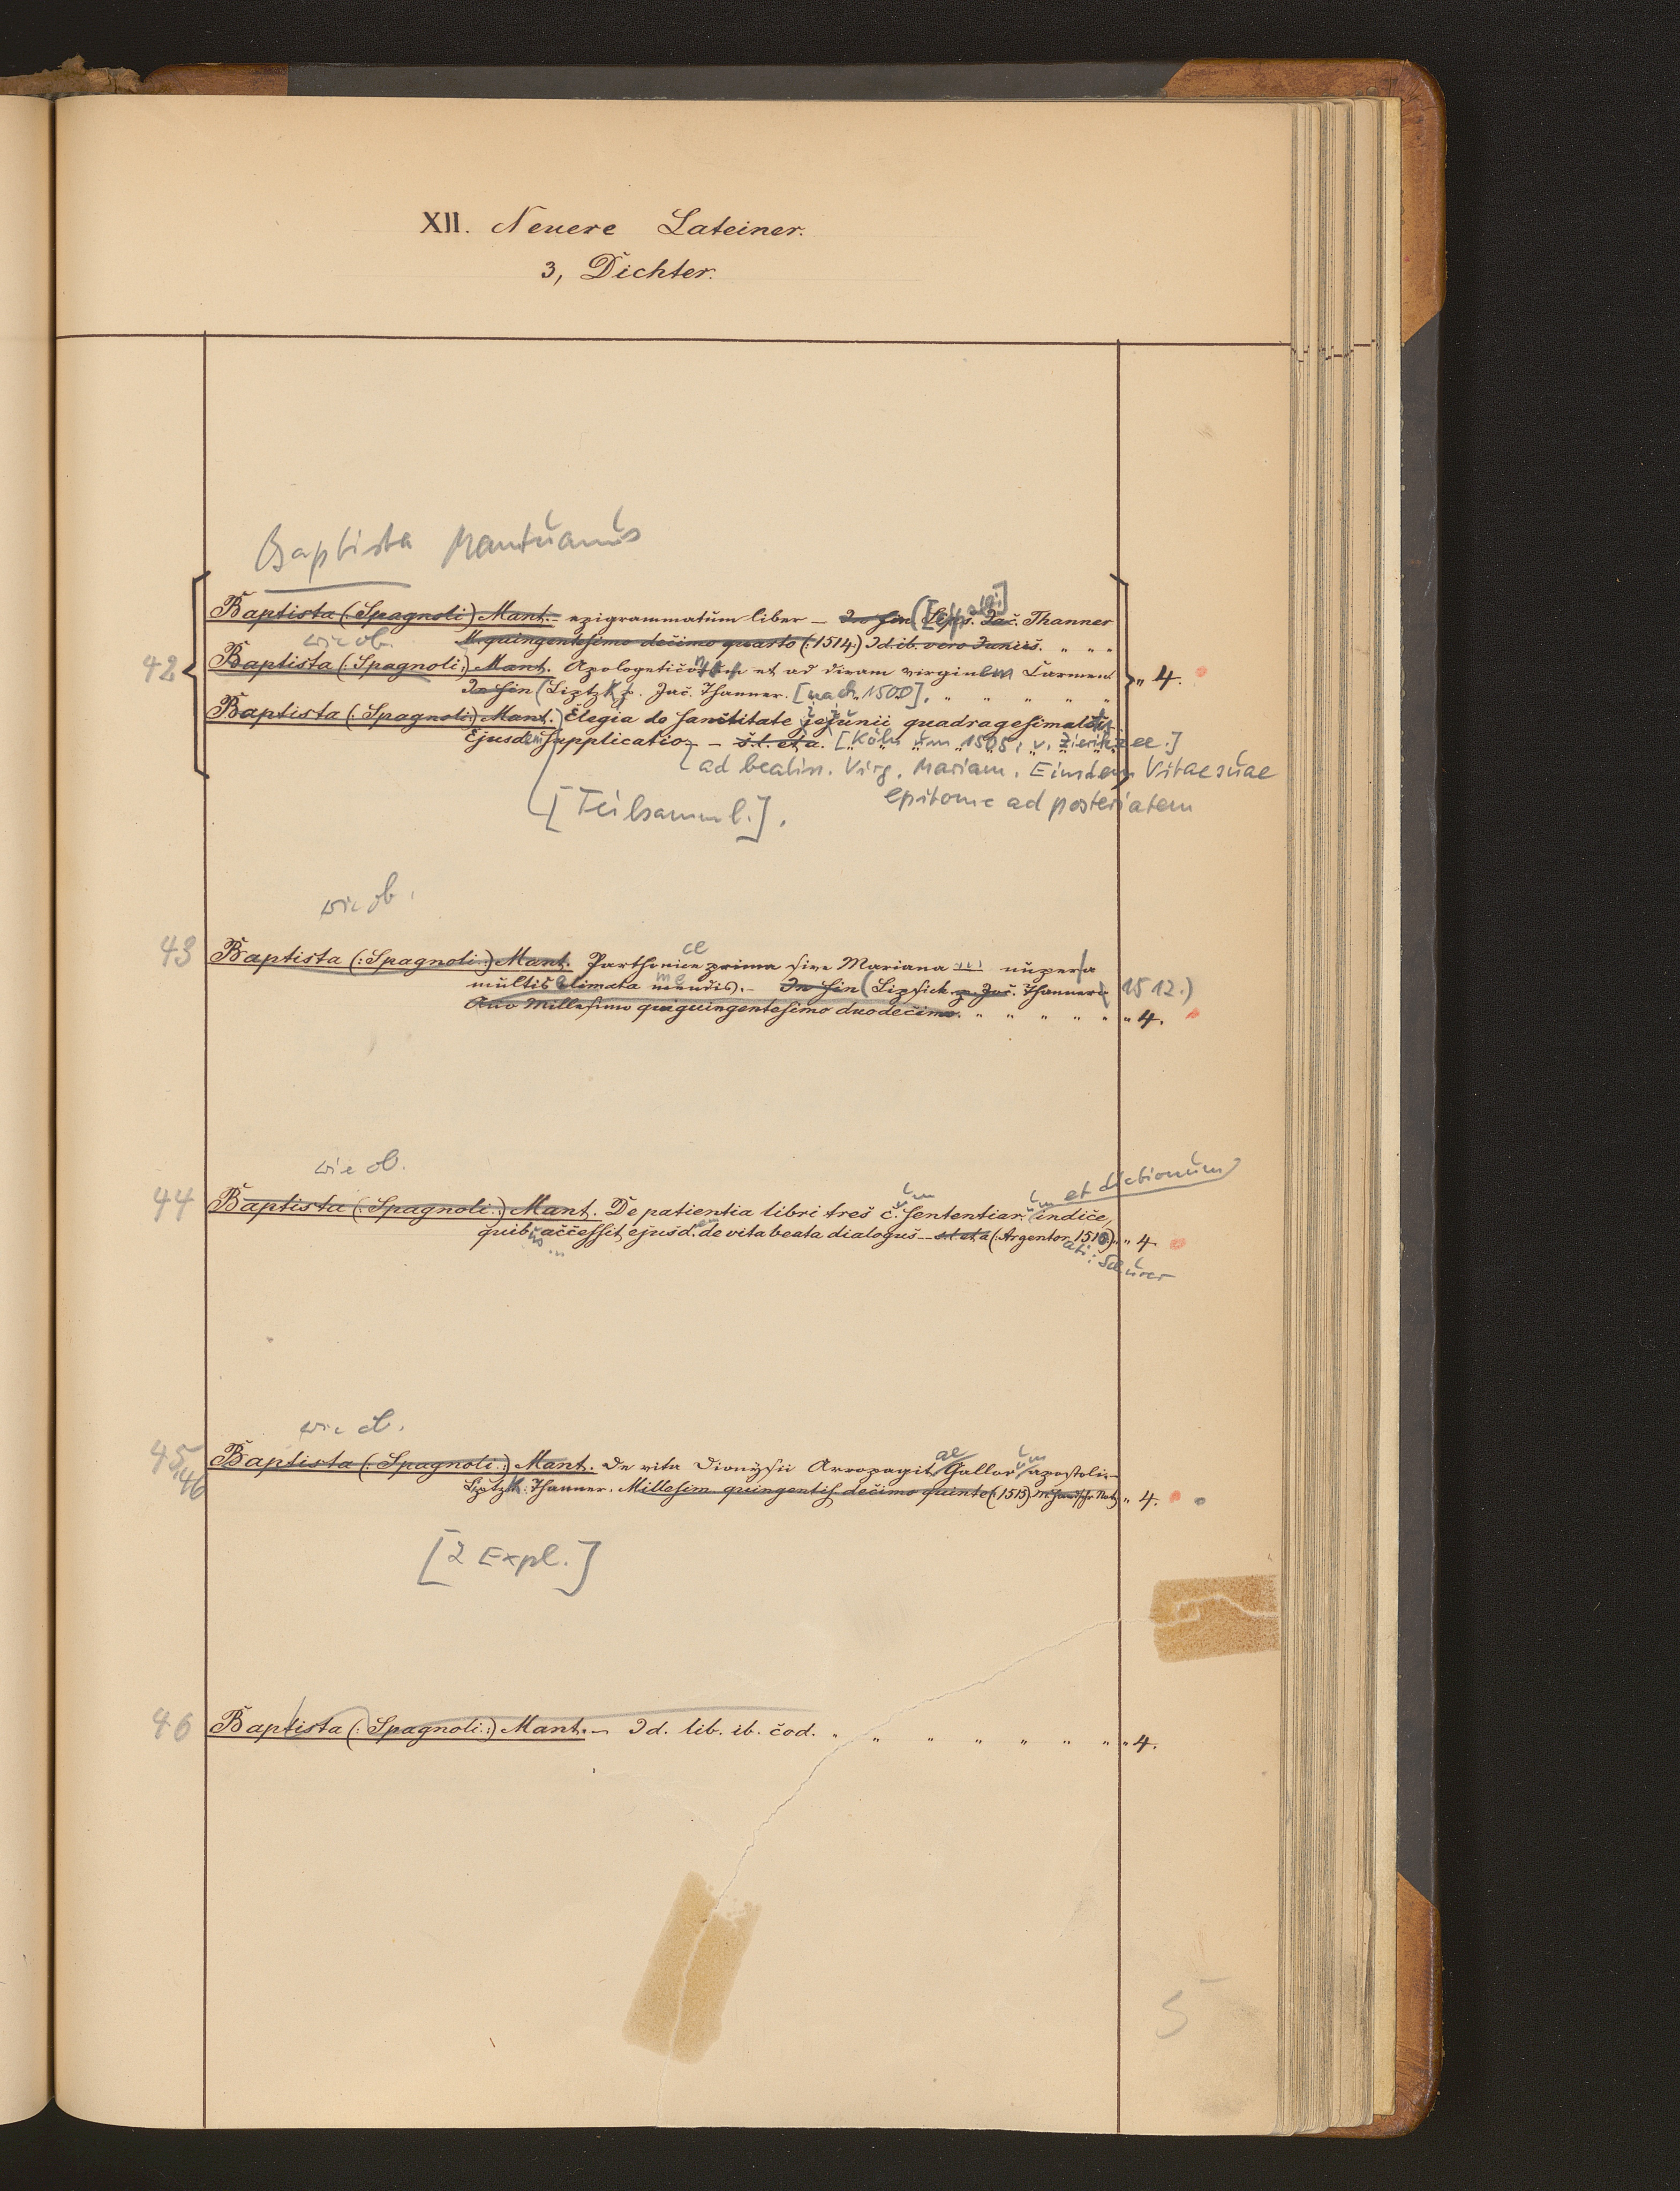 XII. Neuere Lateiner.
3, Dichter.
Baptista Mantuanus
Baptista (Spagnoli) Mant. epigrammatum liber – In fin (Lips. Jac. Thanner
wie ob. M. quingentesimo decimo quarto (: 1514 :) Id. ib. vero Juniis. " " "
42 Baptista (: Spagnoli :) Mant. Apologeticon et ad divam virginem Carmen " 4.
In fin (Liptzk p. Jac. Thanner. [nach 1500], " " " " "
Baptista (: Spagnoli :) Mant. Elegia de sanctitate jejunii quadragesimalis
Ejusdem supplicatio – s. l. et a. [Köln um 1505, v. Zierikzee.]
ad beatiss. Virg. Mariam. Eiusdem Vitae suae
epitome ad posteriatem
[Teilsamml.].
wie ob.
43 Baptista (: Spagnoli :) Mant. Parthenice prima sive Mariana nuper a
multis elimata mendis. – In fin (Lipsick p. Jac. Thanner 1512.)
Ano Millesimo quiquingentesimo duodecimo. " " " " " " 4.
wie ob.
et dictionum
44 Baptista (: Spagnoli :) Mant. De patientia libri tres c. um sententiar. um indice,
quibus accessit ejusdem de vita beata dialogus – s. l. et a (Argentorati: 1510) " " 4.
Sc urer
wie ob.
45, 46 Baptista (: Spagnoli :) Mant. De vita Dionysii Areopagitae Gallorum apostoli –
Liptzk. Thanner. Millesim. quingentis. decimo quinto (: 1515) " 4.
[2 Expl.]
46 Baptista (: Spagnoli :) Mant. – Id. lib. ib. eod. " " " " " " " " 4.
5